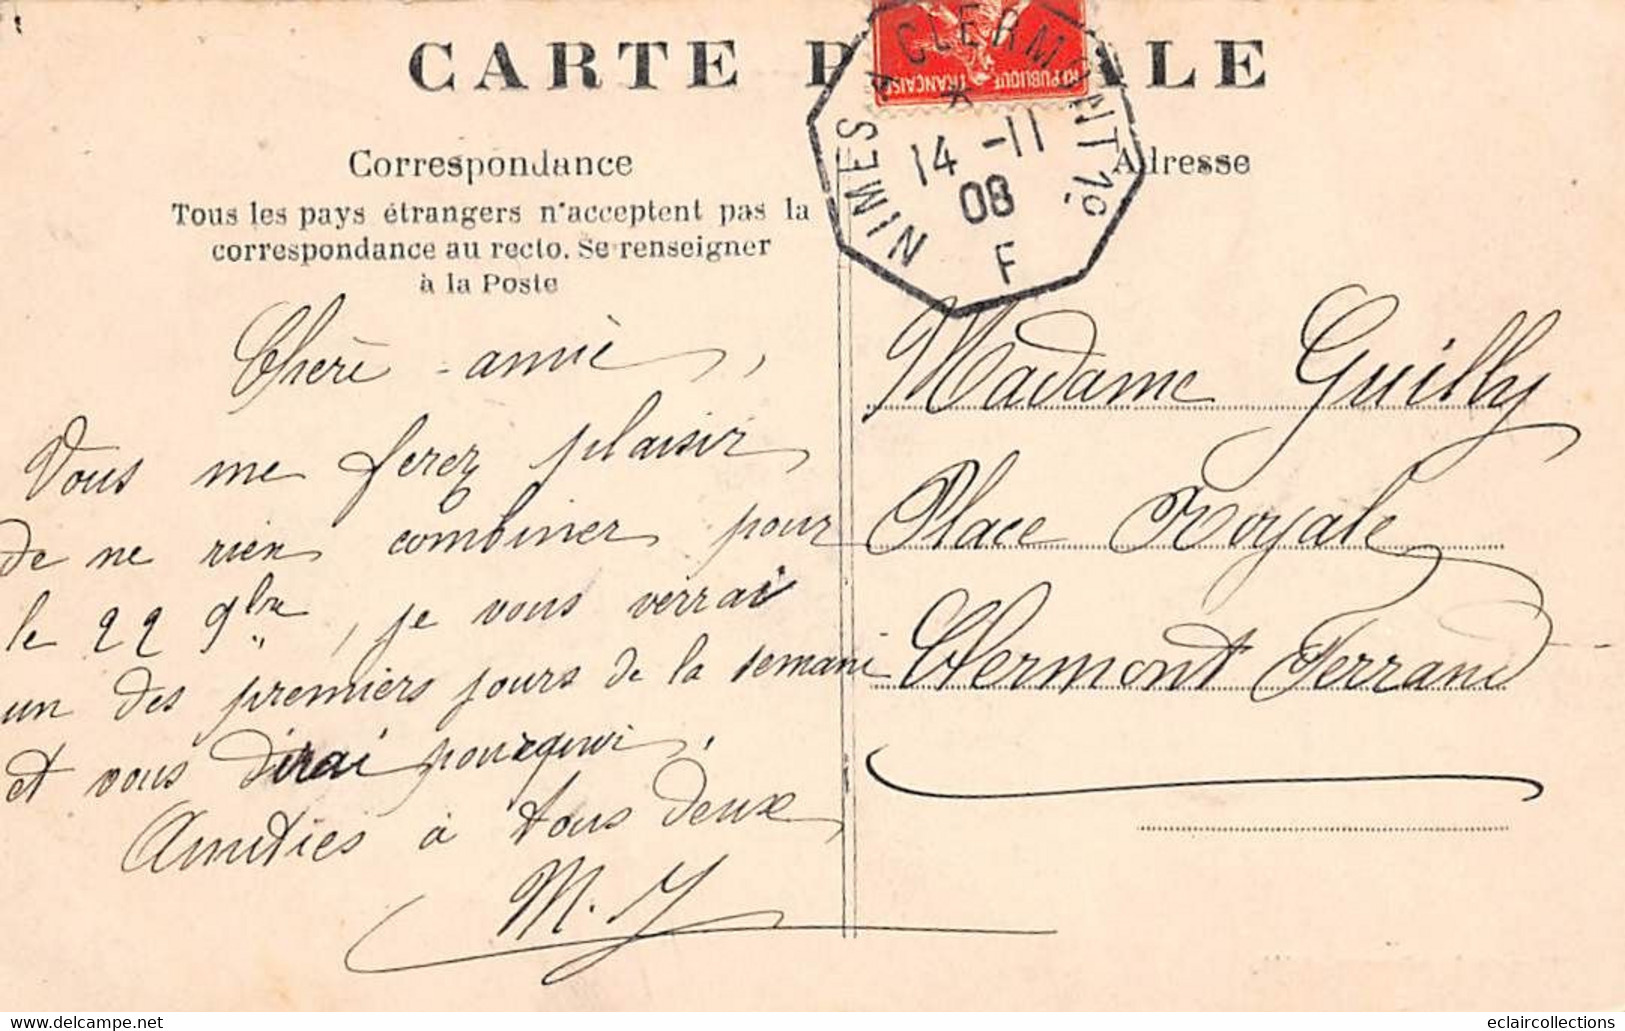 CARTE P ALE
RÉPUBLIQUE FRANÇAISE
NIMES A CLERMONT 1º
14 -11
08
F
Correspondance
Tous les pays étrangers n'acceptent pas la
correspondance au recto. Se renseigner
à la Poste
Chère amie,
Vous me ferez plaisir
de ne rien combiner pour
le 22 9bre, je vous verrai
un des premiers jours de la semaine
et vous dirai pourquoi.
Amitiés à tous deux
M. Y
Adresse
Madame Guilly
Place Royale
Clermont Ferrand
www.delcampe.net
eclaircollections